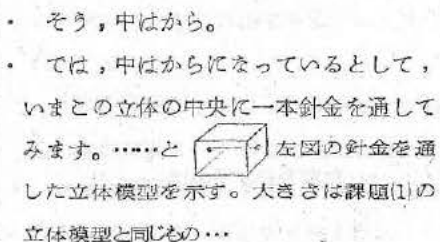 ・ そう，中はから。
・ では，中はからになっているとして，
いまこの立体の中央に一本針金を通して
みます。……と 左図の針金を通
した立体模型を示す。大きさは課題(1)の
立体模型と同じもの…